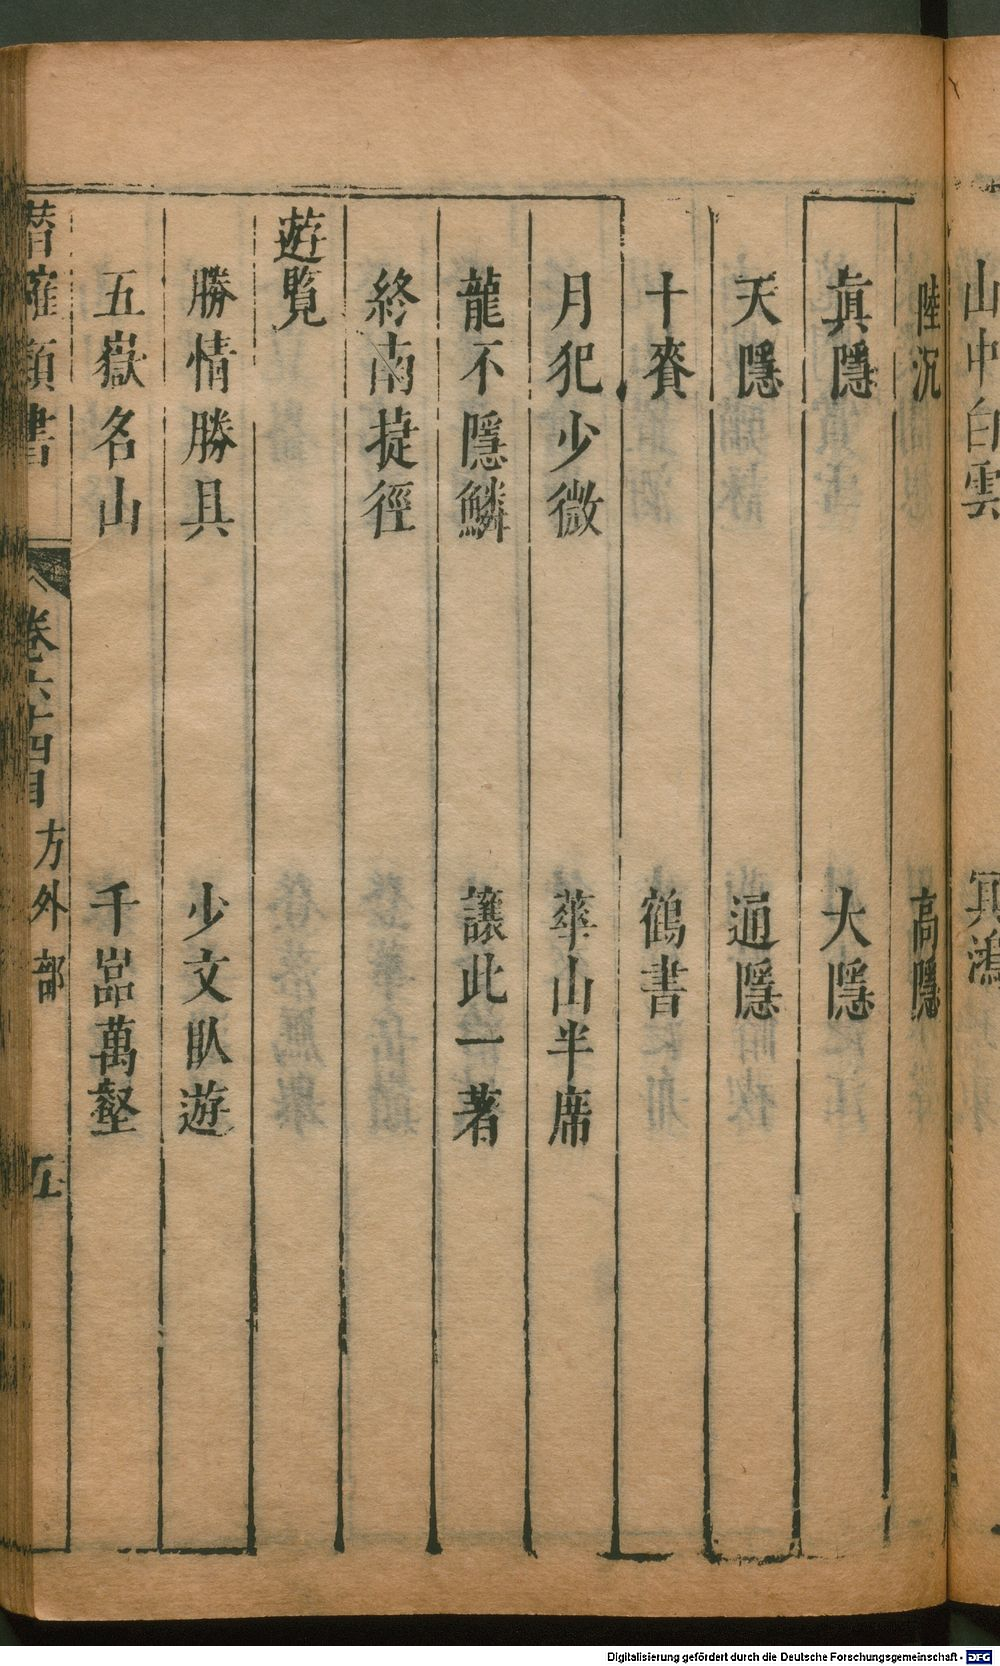 山中白雲 冥鴻
陸沉 高隱
眞隱 大隱
天隱 通隱
十賚 鶴書
月犯少微 華山半席
龍不隱鱗 讓此一著
終南捷徑
遊覽
勝情勝具 少文臥遊
五嶽名山 千嵓萬壑
潛確類書 卷六十四目 方外部 五
Digitalisierung gefördert durch die Deutsche Forschungsgemeinschaft - DFG